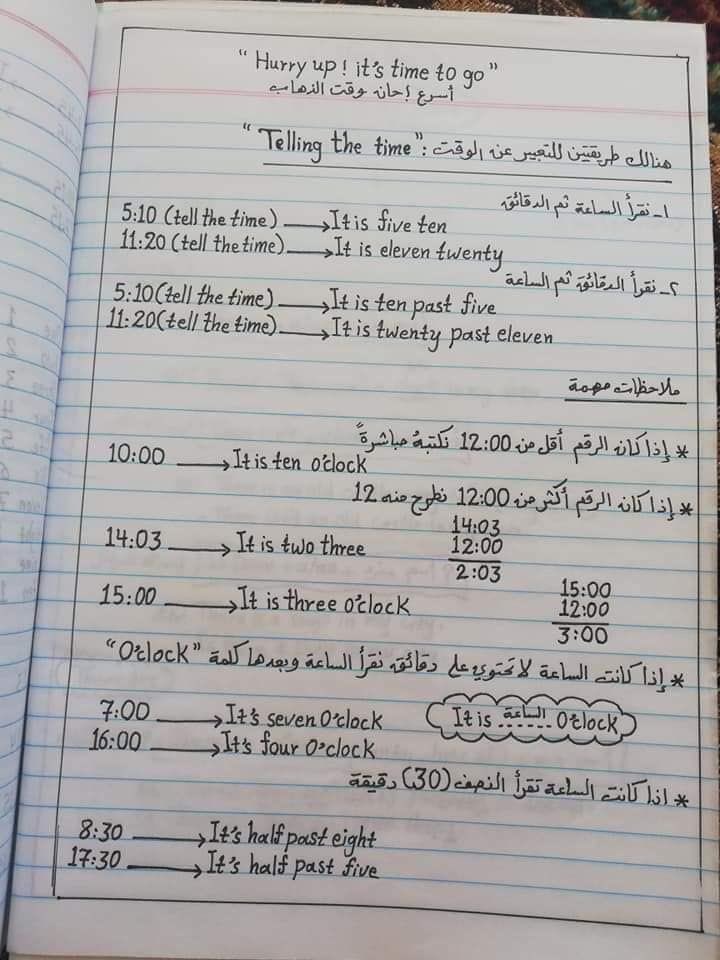 "Hurry up! it's time to go"
أسرع إحانه وقت الذهاب
هنالك طريقتين للتعبير عن الوقت: "Telling the time"
١- نقرأ الساعة ثم الدقائق
5:10 (tell the time) → It is five ten
11:20 (tell the time) → It is eleven twenty
٢- نقرأ الدقائق ثم الساعة
5:10 (tell the time) → It is ten past five
11:20 (tell the time) → It is twenty past eleven
ملاحظات مهمة
* إذا كانه الرقم أقل من 12:00 نكتبهُ مباشرةً
10:00 → It is ten o'clock
* إذا كانه الرقم أكثر من 12:00 نطرح منه 12
14:03
14:03 → It is two three 12:00
2:03
15:00
15:00 → It is three o'clock 12:00
3:00
* إذا كانت الساعة لا تحتوي على دقائق نقرأ الساعة وبعدها كلمة "O'clock"
7:00 → It's seven O'clock
It is الساعة O'clock
16:00 → It's four O'clock
* اذا كانت الساعة تقرأ النصف (30) دقيقة
8:30 → It's half past eight
17:30 → It's half past five